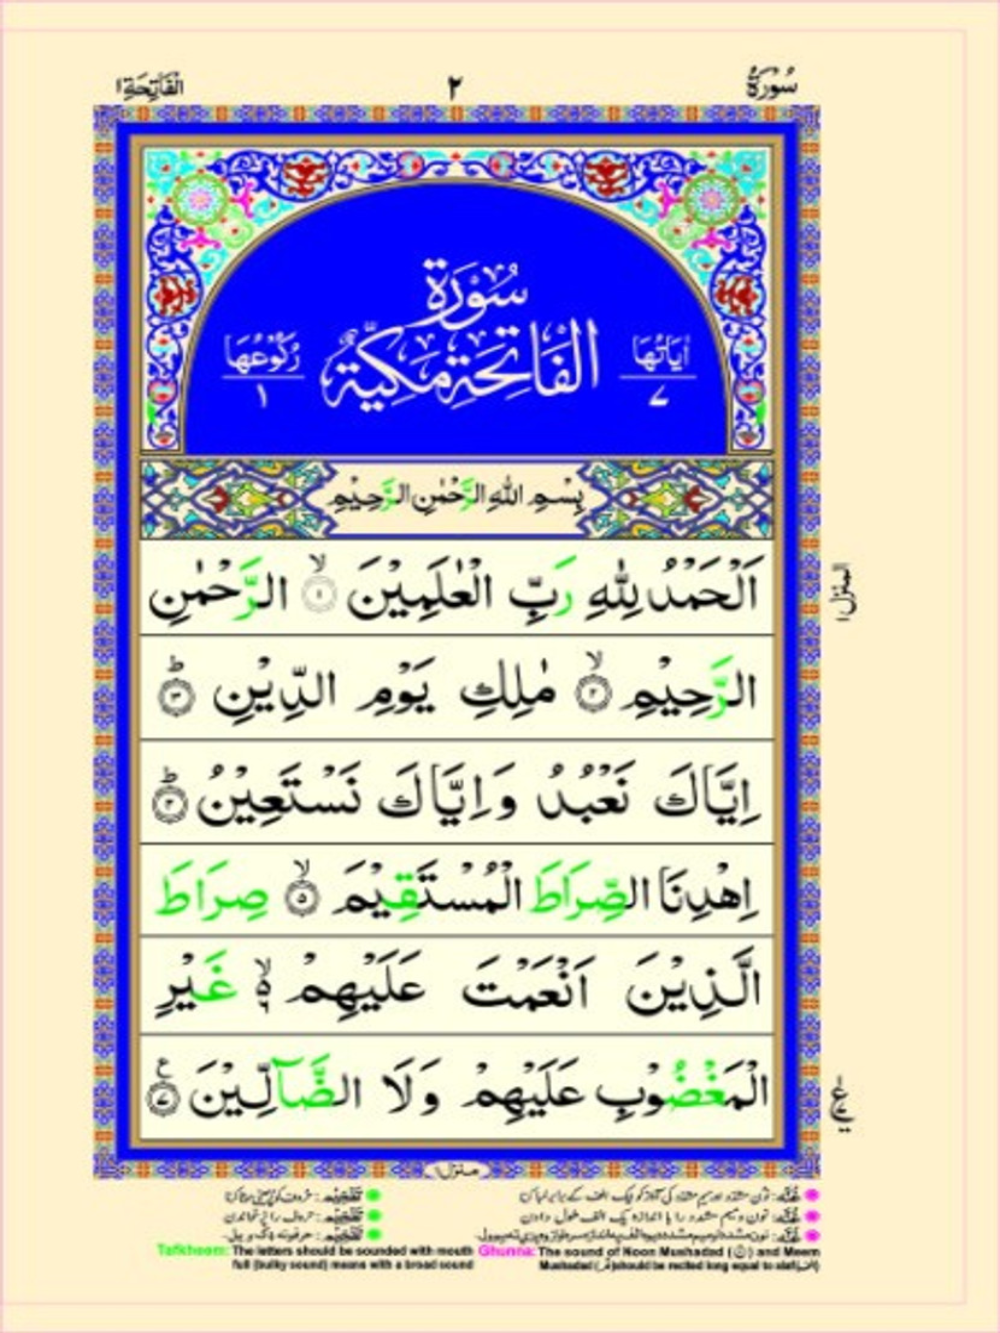 سُوْرَةُ ٢ اَلْفَاتِحَة ١
سُوْرَةُ
اٰيَاتُهَا ٧ الْفَاتِحَةِ مَكِّيَّةٌ رُكُوْعُهَا ١
بِسْمِ اللّٰهِ الرَّحْمٰنِ الرَّحِيْمِ
اَلْحَمْدُ لِلّٰهِ رَبِّ الْعٰلَمِيْنَ ۙ١ الرَّحْمٰنِ
الرَّحِيْمِ ۙ٢ مٰلِكِ يَوْمِ الدِّيْنِ ؕ٣
اِيَّاكَ نَعْبُدُ وَاِيَّاكَ نَسْتَعِيْنُ ؕ٤
اِهْدِنَا الصِّرَاطَ الْمُسْتَقِيْمَ ۙ٥ صِرَاطَ
الَّذِيْنَ اَنْعَمْتَ عَلَيْهِمْ ۙ٦ غَيْرِ
الْمَغْضُوْبِ عَلَيْهِمْ وَلَا الضَّآلِّيْنَ ٧ ع
المنزل ١
منزل ١
Tafkheem: The letters should be sounded with mouth
full (bulky sound) means with a broad sound
Ghunna: The sound of Noon Mushadad (نّ) and Meem
Mushadad (مّ) should be recited long equal to